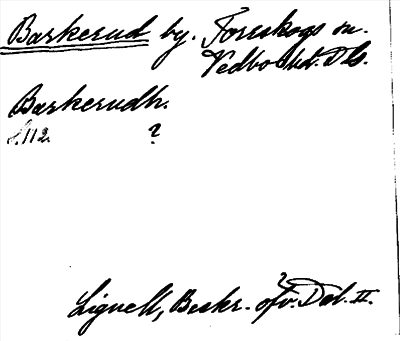 Barkerud by. Töreskogs sn.
Vedbo hd. Dls.
Barkerudh.
s. 112. ?
Lignell, Beskr. öfv. Dal. II.